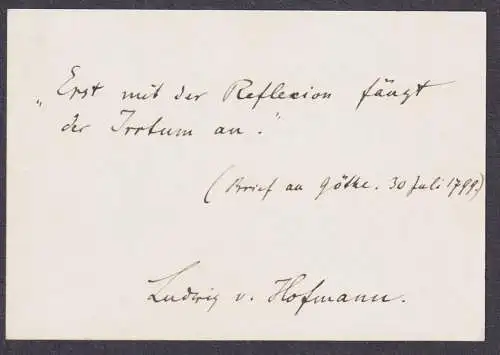 „Erst mit der Reflexion fängt
der Irrtum an.“
(Brief an Göthe. 30 Juli 1799)
Ludwig v. Hofmann.